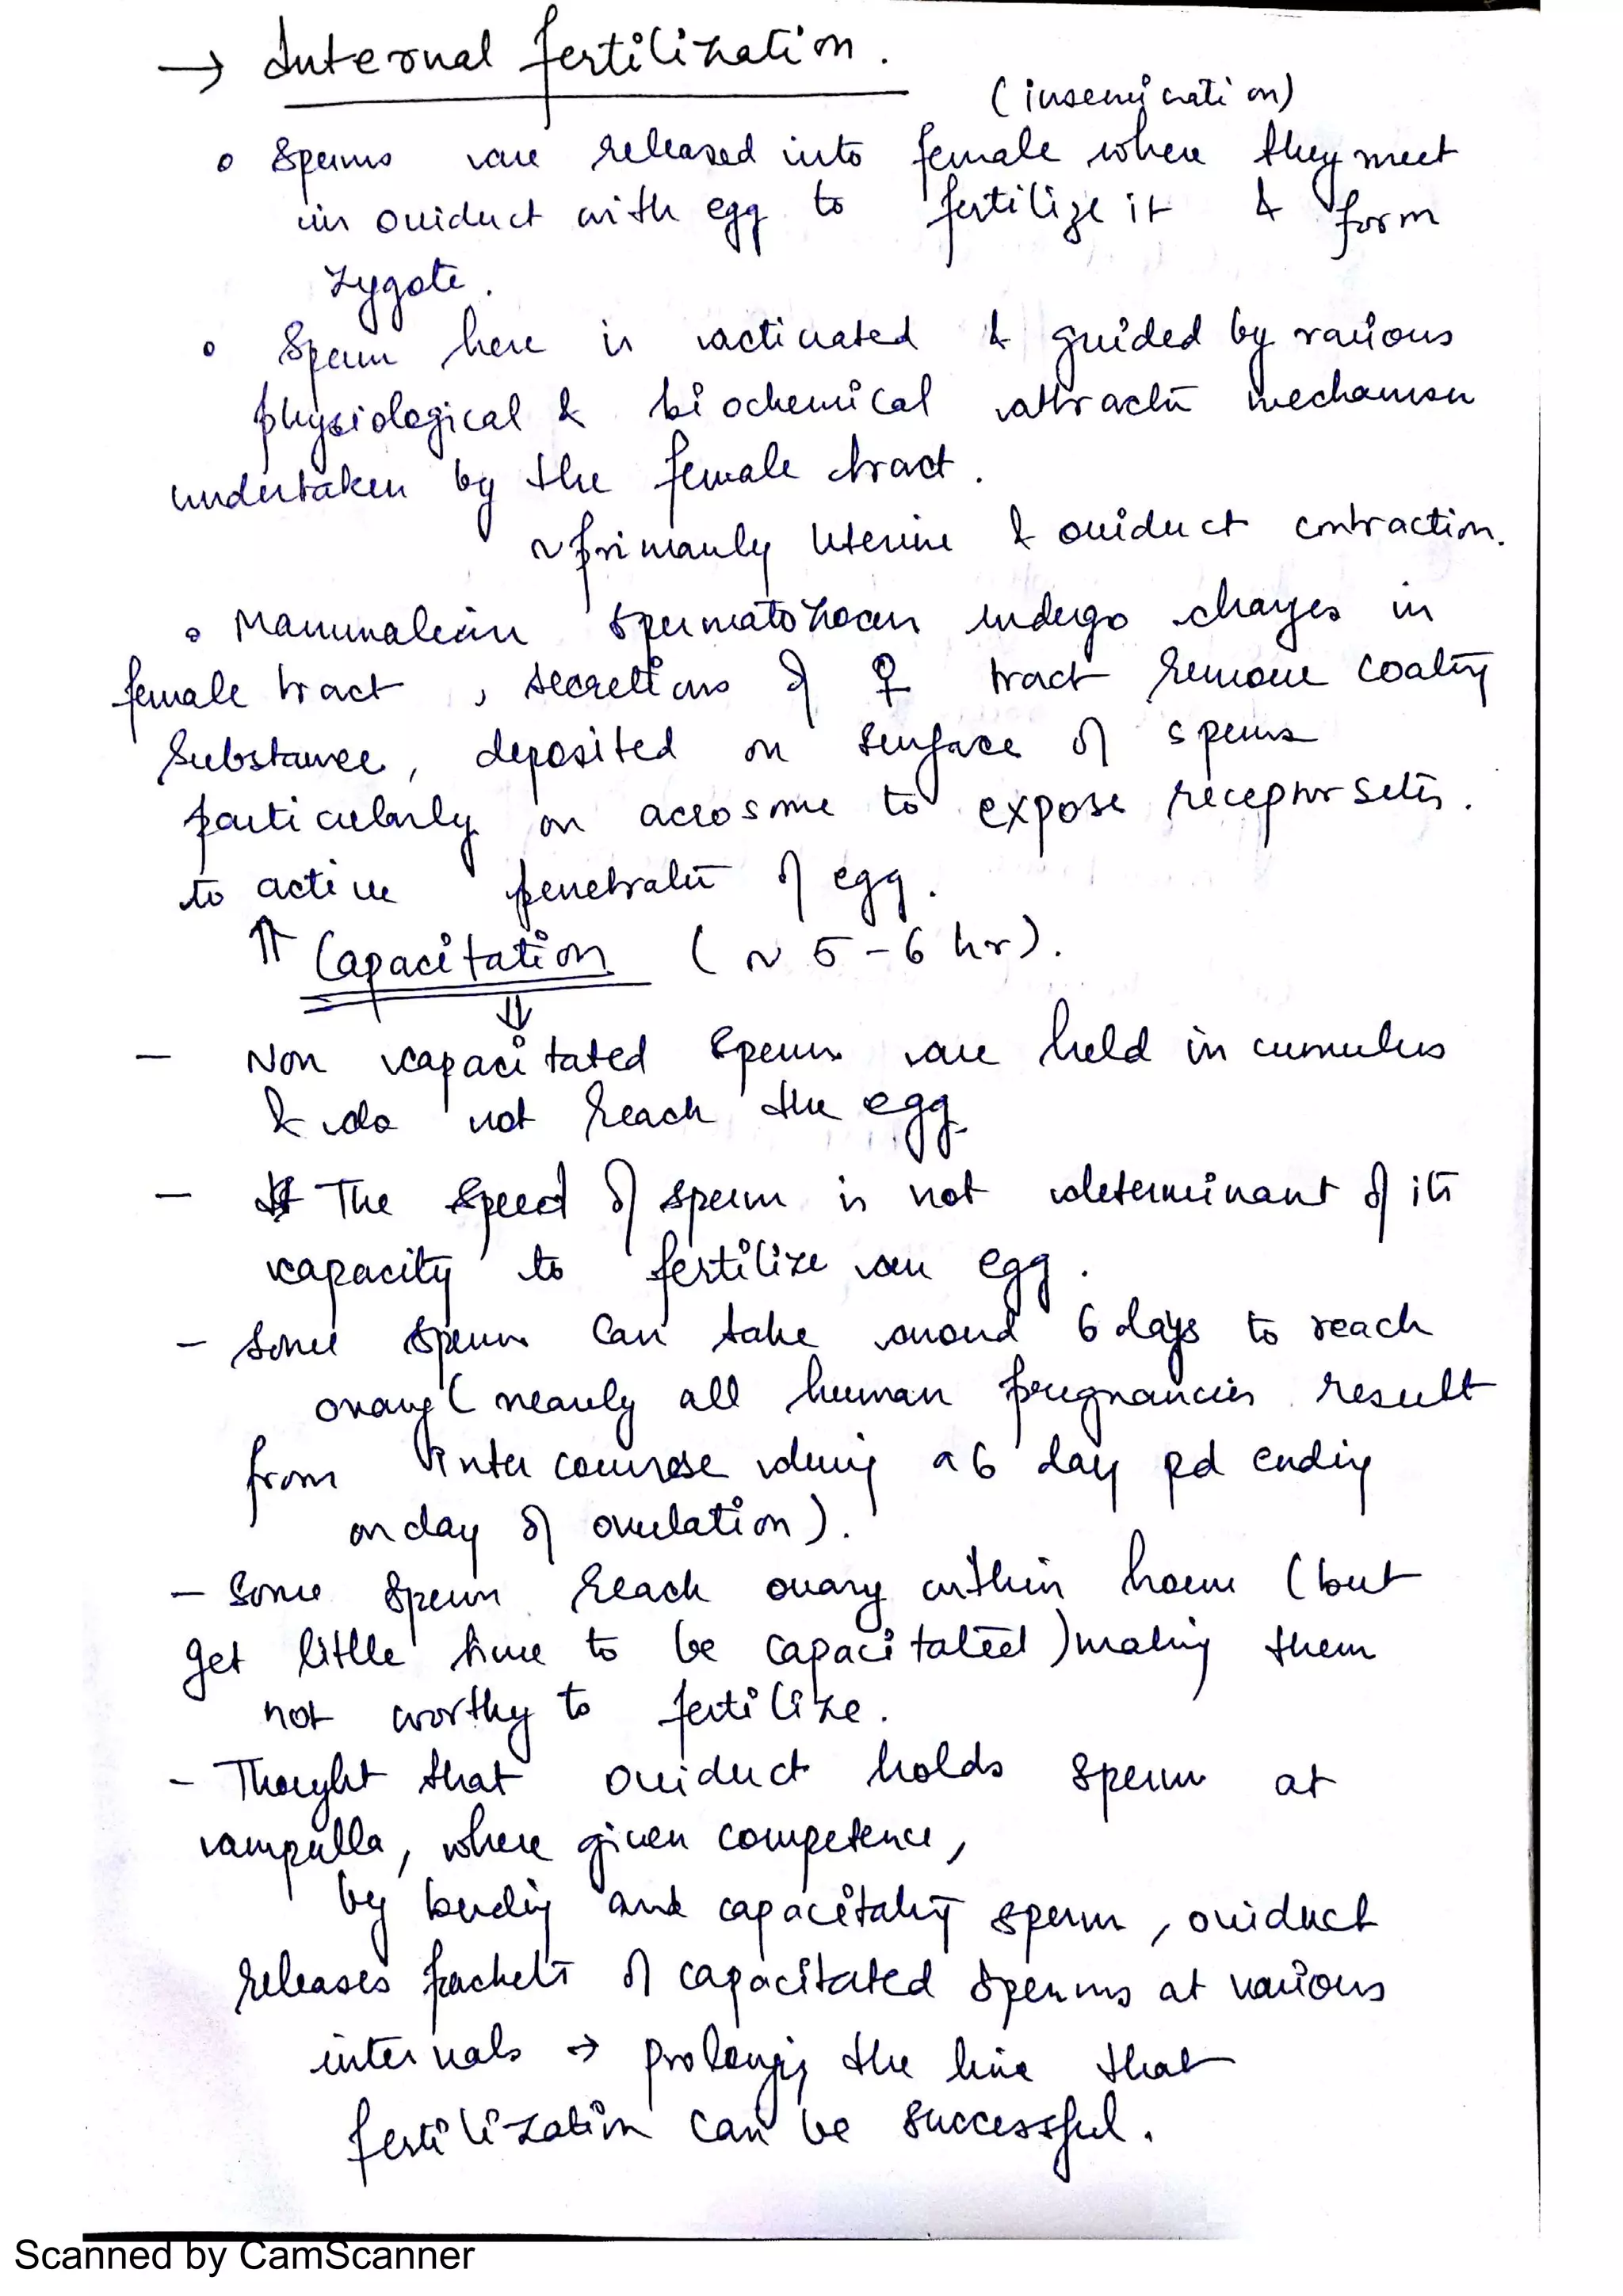 → Internal fertilization.
(insemination)
o Sperms are released into female where they meet
in oviduct with egg to fertilize it & form
zygote.
o Sperm here is activated & guided by various
physiological & biochemical attractn mechanism
undertaken by the female tract.
~ primarily uterine & oviduct contraction.
o Mammalian spermatozoan undergo changes in
female tract, secretions of ♀ tract remove coating
substance, deposited on surface of sperms
particularly on acrosome to expose receptor sites.
to active penetratn of egg.
⇑ Capacitation (~ 5-6 hr).
⇓
- Non capacitated sperm are held in cumulus
& do not reach the egg.
- The speed of sperm is not determinant of its
capacity to fertilize an egg.
- Some sperm can take around 6 days to reach
ovary (nearly all human pregnancies result
from intercourse during a 6 day pd ending
on day of ovulation).
- Some sperm reach ovary within hour (but
get little time to be capacitated) making them
not worthy to fertilize.
- Thought that oviduct holds sperm at
ampulla, where given competence,
by binding and capacitating sperm, oviduct
releases packets of capacitated sperms at various
intervals → prolonging the time that
fertilization can be successful.
Scanned by CamScanner